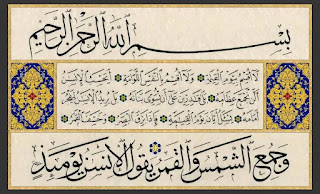 بِسْمِ اللهِ الرَّحْمٰنِ الرَّحِيمِ
لَا أُقْسِمُ بِيَوْمِ الْقِيٰمَةِ وَلَا أُقْسِمُ بِالنَّفْسِ اللَّوَّامَةِ أَيَحْسَبُ الْإِنْسٰنُ
أَلَّنْ نَجْمَعَ عِظَامَهُ بَلٰى قٰدِرِينَ عَلٰى أَنْ نُسَوِّيَ بَنَانَهُ بَلْ يُرِيدُ الْإِنْسٰنُ لِيَفْجُرَ
أَمَامَهُ يَسْـَٔلُ أَيَّانَ يَوْمُ الْقِيٰمَةِ فَإِذَا بَرِقَ الْبَصَرُ وَخَسَفَ الْقَمَرُ
وَجُمِعَ الشَّمْسُ وَالْقَمَرُ يَقُولُ الْإِنْسٰنُ يَوْمَئِذٍ